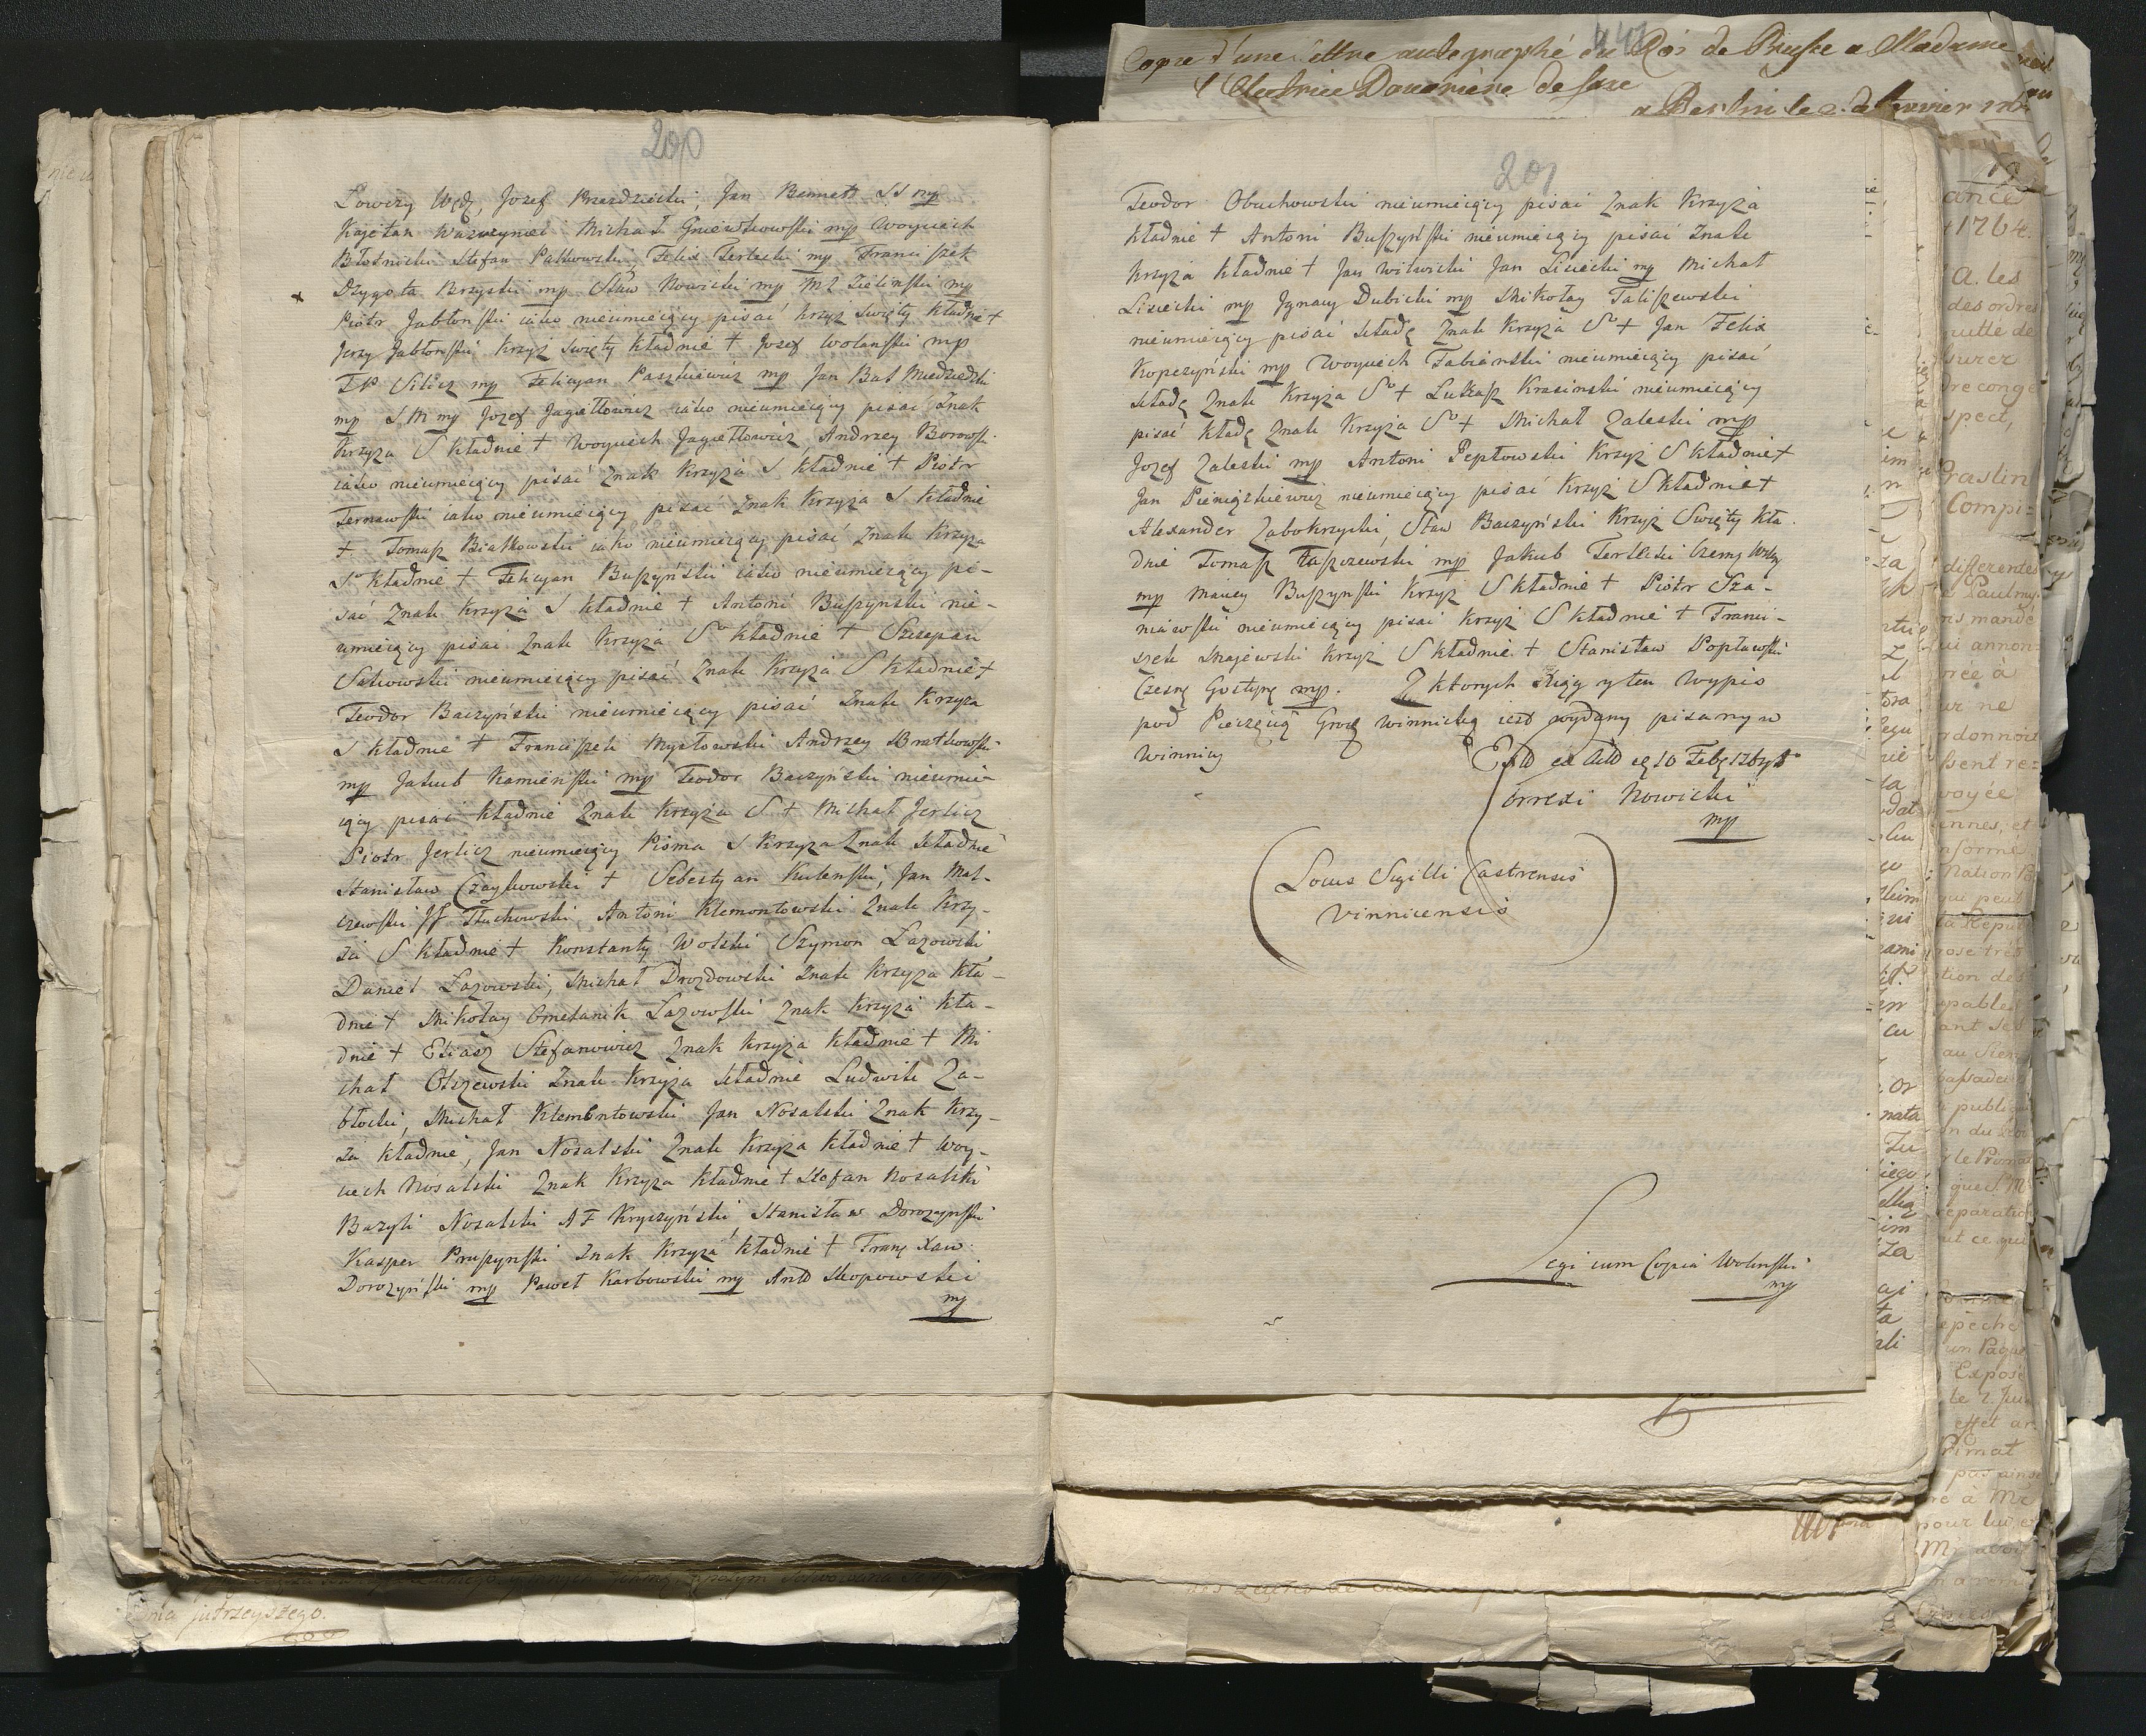 200
Łowczy Wdź, Jozef Przezdziecki, Jan Bennett SS mp
Kajetan Wawrzyniec Michał Gniewkowski mp Woyciech
Błotnicki Stefan Pałkowski, Felix Terlecki mp Franciszek
Dzygota Brzyski mp Sław Nowicki mp MZ Zielinski mp
Piotr Jabłonski iako nieumieiący pisać krzyż Swięty kładnie +
Jerzy Jabłonski Krzyż Swięty kładnie + Jozef Wolanski mp
mp Felicyan Paszkiewicz mp Jan Bał Miedzielski
mp SM mp Jozef Jagiełłowicz iako nieumieiący pisać Znak
Krzyza S kładnie + Woyciech Jagiełłowicz Andrzey Borowski
iako nieumieiący pisać Znak Krzyza S kładnie + Piotr
Ternawski iako nieumieiący pisać Znak Krzyza S kładnie
+ Tomasz Białkowski iako nieumieiący pisać Znak Krzyza
So kładnie + Felicyan Buszyński iako nieumieiący pi-
sać Znak Krzyza S kładnie + Antoni Buszynski nie-
umieiący pisac Znak Krzyza So kładnie + Szczepan
Sałkowski nieumieiący pisać Znak Krzyza S kładnie +
Teodor Baczyński nieumieiący pisać Znak Krzyza
S kładnie + Franciszek Mysłowski Andrzey Bratkowski
mp Jakub Kamienski mp Teodor Baczyński nieumie-
iący pisac kładnie Znak Krzyza S + Michał Jerlicz
Piotr Jerlicz nieumieiący Pisma S Krzyza Znak kładnie
Stanisław Czaykowski + Sebestyan Kulenski, Jan Mal-
czewski JJ Tłuchowski Antoni Klemontowski Znak Krzy-
za S kładnie + Konstanty Wolski Szymon Lazowski
Daniel Lazowski, Michał Drozdowski Znak Krzyza kła-
dnie + Mikołay Omelanik Lazowski Znak Krzyza kła-
dnie + Eliasz Stefanowicz Znak Krzyza kładnie + Mi
chał Olszewski Znak Krzyza kładnie Ludwik Za-
błocki, Michał Klementowski Jan Nosalski Znak Krzy-
za kładnie, Jan Nosalski Znak Krzyza kładnie + Woy-
ciech Nosalski Znak Krzyza kładnie + Stefan Nosalski
Bazyli Nosalski AF Kryczyński, Stanisław Dorozynski
Kasper Pruszynski Znak Krzyza kładnie + Franc Xaw:
Dorozyński mp Paweł Karbowski mp Antо Skopowski
mp
201
Teodor Obuchowski nieumieiący pisac Znak Krzyza
kładnie + Antoni Buszyński nieumieiący pisać Znak
Krzyza kładnie + Jan Witwicki Jan Lisiecki mp Michał
Lisiecki mp Jgnacy Dubicki mp Mikołay Taliszewski
nieumieiący pisać kładę Znak Krzyza So + Jan Felix
Kopczyński mp Woyciech Fabianski nieumieiący pisać
kładę Znak Krzyza So + Lukasz Krasinski nieumieiący
pisać kładę Znak Krzyza So + Michał Zaleski mp
Jozef Zaleski mp Antoni Pepłowski Krzyż S kładnie +
Jan Pieniążkiewicz nieumieiący pisać Krzyż S kładnie +
Alexander Zabokrzycki, Sław Baczyński Krzyż Swięty kła-
dnie Tomasz mp Jakub Terlecki
mp Maciey Buszynski Krzyż S kładnie + Piotr Sza-
niawski nieumieiący pisac Krzyż S kładnie + Franci-
szek Majewski Krzyż S kładnie + Stanisław Popławski
Czesnę Gostynę mp. Z ktorych Xiąg y ten Wypis
pod Pieczęcią Grod Winnicką iest wydany pisany w
Winnicy
Correxi Nowicki
mp
Locus Sigilli Castrensis
Vinnicensis
Legi cum Copia Wolinski
mp
Copie d'une lettre autographe du Roi de Prusse a Madame
l'Electrice Douariere de Saxe
a Berlin le
1764.
nia jutrzeyszego.